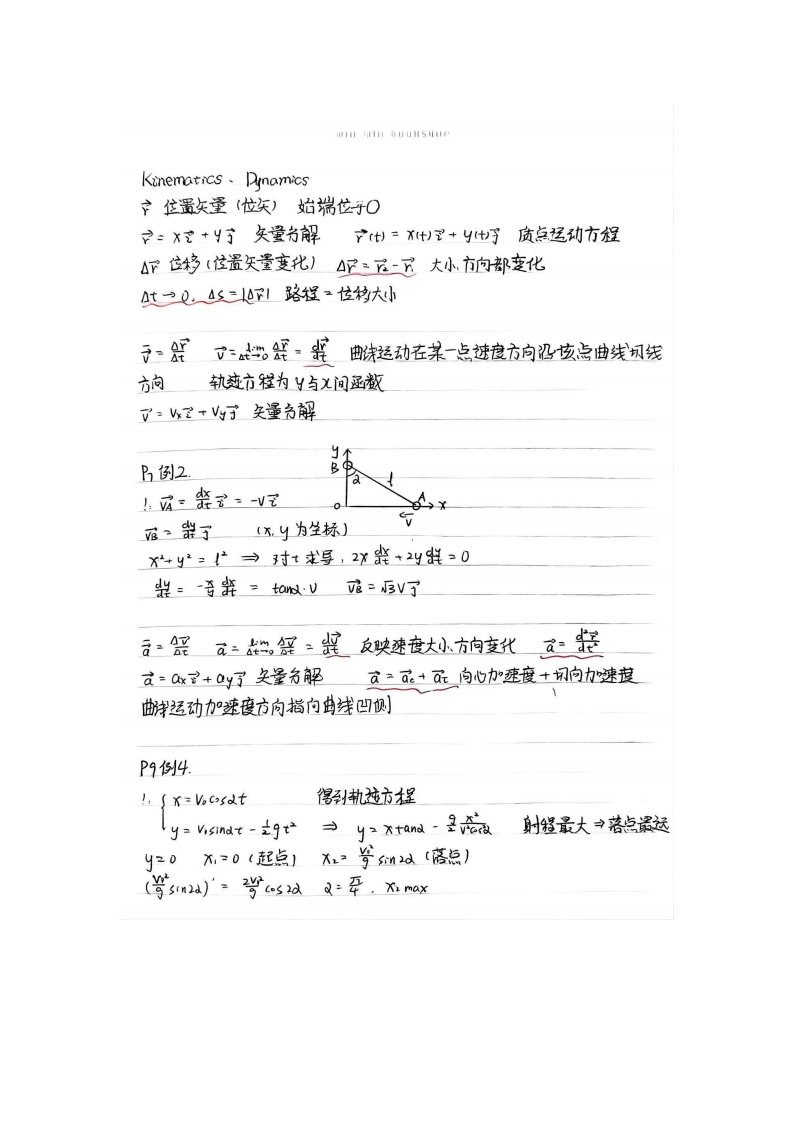 Kinematics、Dynamics
r⃗ 位置矢量（位矢） 始端位于O
r⃗ = xi⃗ + yj⃗ 矢量分解 r⃗(t) = x(t)i⃗ + y(t)j⃗ 质点运动方程
Δr⃗ 位移（位置矢量变化） Δr⃗ = r⃗₂ - r⃗₁ 大小、方向都变化
Δt → 0, Δs = |Δr⃗| 路程 = 位移大小
v̄⃗ = Δr⃗/Δt v⃗ = lim Δt→0 Δr⃗/Δt = dr⃗/dt 曲线运动在某一点速度方向沿该点曲线切线
方向 轨迹方程为y与x间函数
v⃗ = Vxi⃗ + Vyj⃗ 矢量分解
P7 例2.
y B α l A O x v⃗
1. v⃗A = dx/dt i⃗ = -vi⃗
v⃗B = dy/dt j⃗ (x, y 为坐标)
x² + y² = l² ⇒ 对t求导, 2x dx/dt + 2y dy/dt = 0
dy/dt = -x/y dx/dt = tanα·v v⃗B = √3vj⃗
ā⃗ = Δv⃗/Δt a⃗ = lim Δt→0 Δv⃗/Δt = dv⃗/dt 反映速度大小、方向变化 a⃗ = d²r⃗/dt²
a⃗ = axi⃗ + ayj⃗ 矢量分解 a⃗ = a⃗c + a⃗t 向心加速度 + 切向加速度
曲线运动加速度方向指向曲线凹侧
P9 例4.
1. { x = V₀cosαt 得到轨迹方程
y = V₀sinαt - ½gt² ⇒ y = xtanα - g/2 x²/v²cos²α 射程最大 ⇒ 落点最远
y=0 x₁=0（起点） x₂ = V₀²/g sin2α（落点）
(V₀²/g sin2α)' = 2V₀²/g cos2α α = π/4, x₂ max